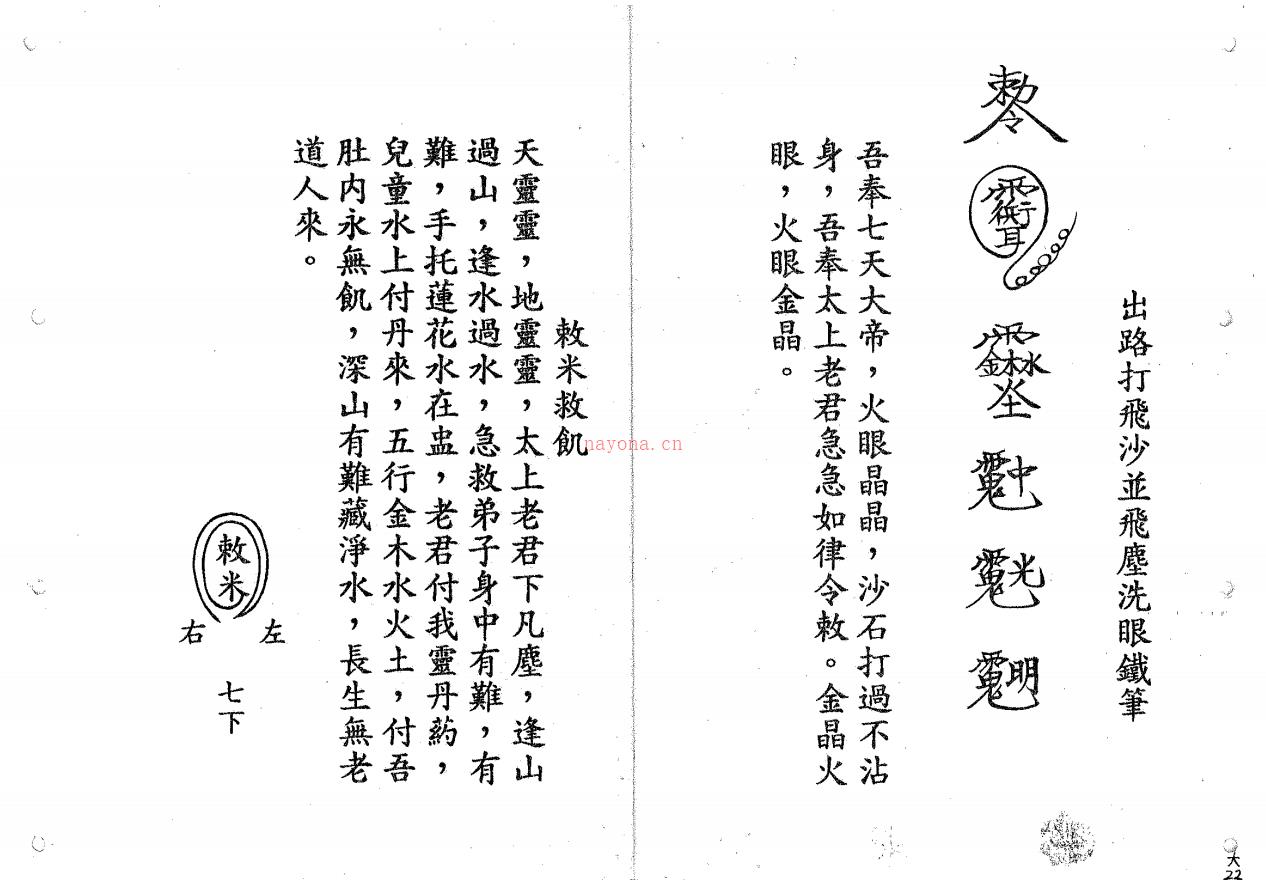 出路打飛沙並飛塵洗眼鐵筆
敕令
中
光
明
吾奉七天大帝，火眼晶晶，沙石打過不沾
身，吾奉太上老君急急如律令敕。金晶火
眼，火眼金晶。
敕米救飢
天靈靈，地靈靈，太上老君下凡塵，逢山
過山，逢水過水，急救弟子身中有難，有
難，手托蓮花水在盅，老君付我靈丹葯，
兒童水上付丹來，五行金木水火土，付吾
肚内永無飢，深山有難藏淨水，長生無老
道人來。
敕米
左
右
七下
nayona.cn
大
22